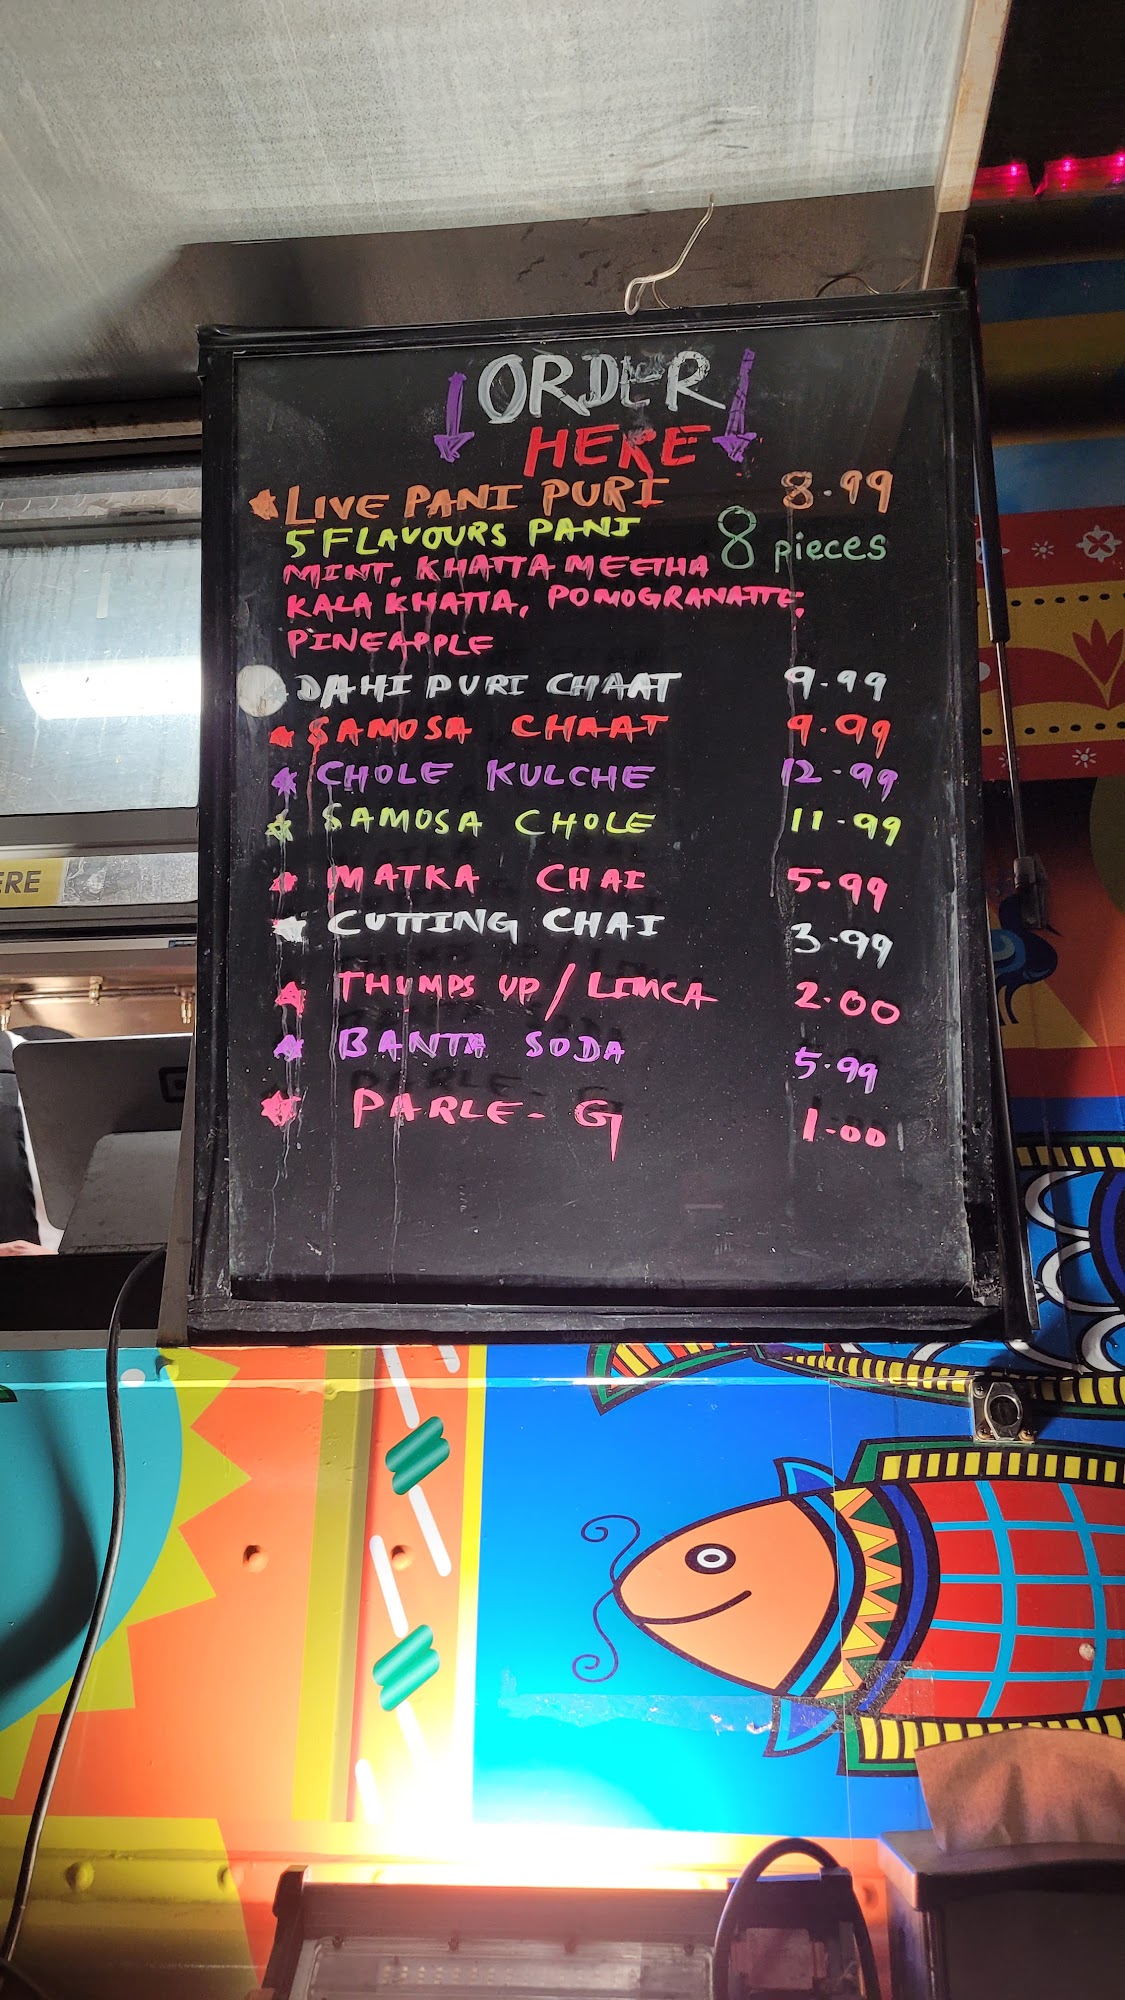 ORDER
HERE
LIVE PANI PURI 8.99
5 FLAVOURS PANI 8 pieces
MINT, KHATTA MEETHA
KALA KHATTA, POMOGRANATTE,
PINEAPPLE
DAHI PURI CHAAT 9.99
SAMOSA CHAAT 9.99
CHOLE KULCHE 12.99
SAMOSA CHOLE 11.99
MATKA CHAI 5.99
CUTTING CHAI 3.99
THUMPS UP / LIMCA 2.00
BANTA SODA 5.99
PARLE-G 1.00
ERE